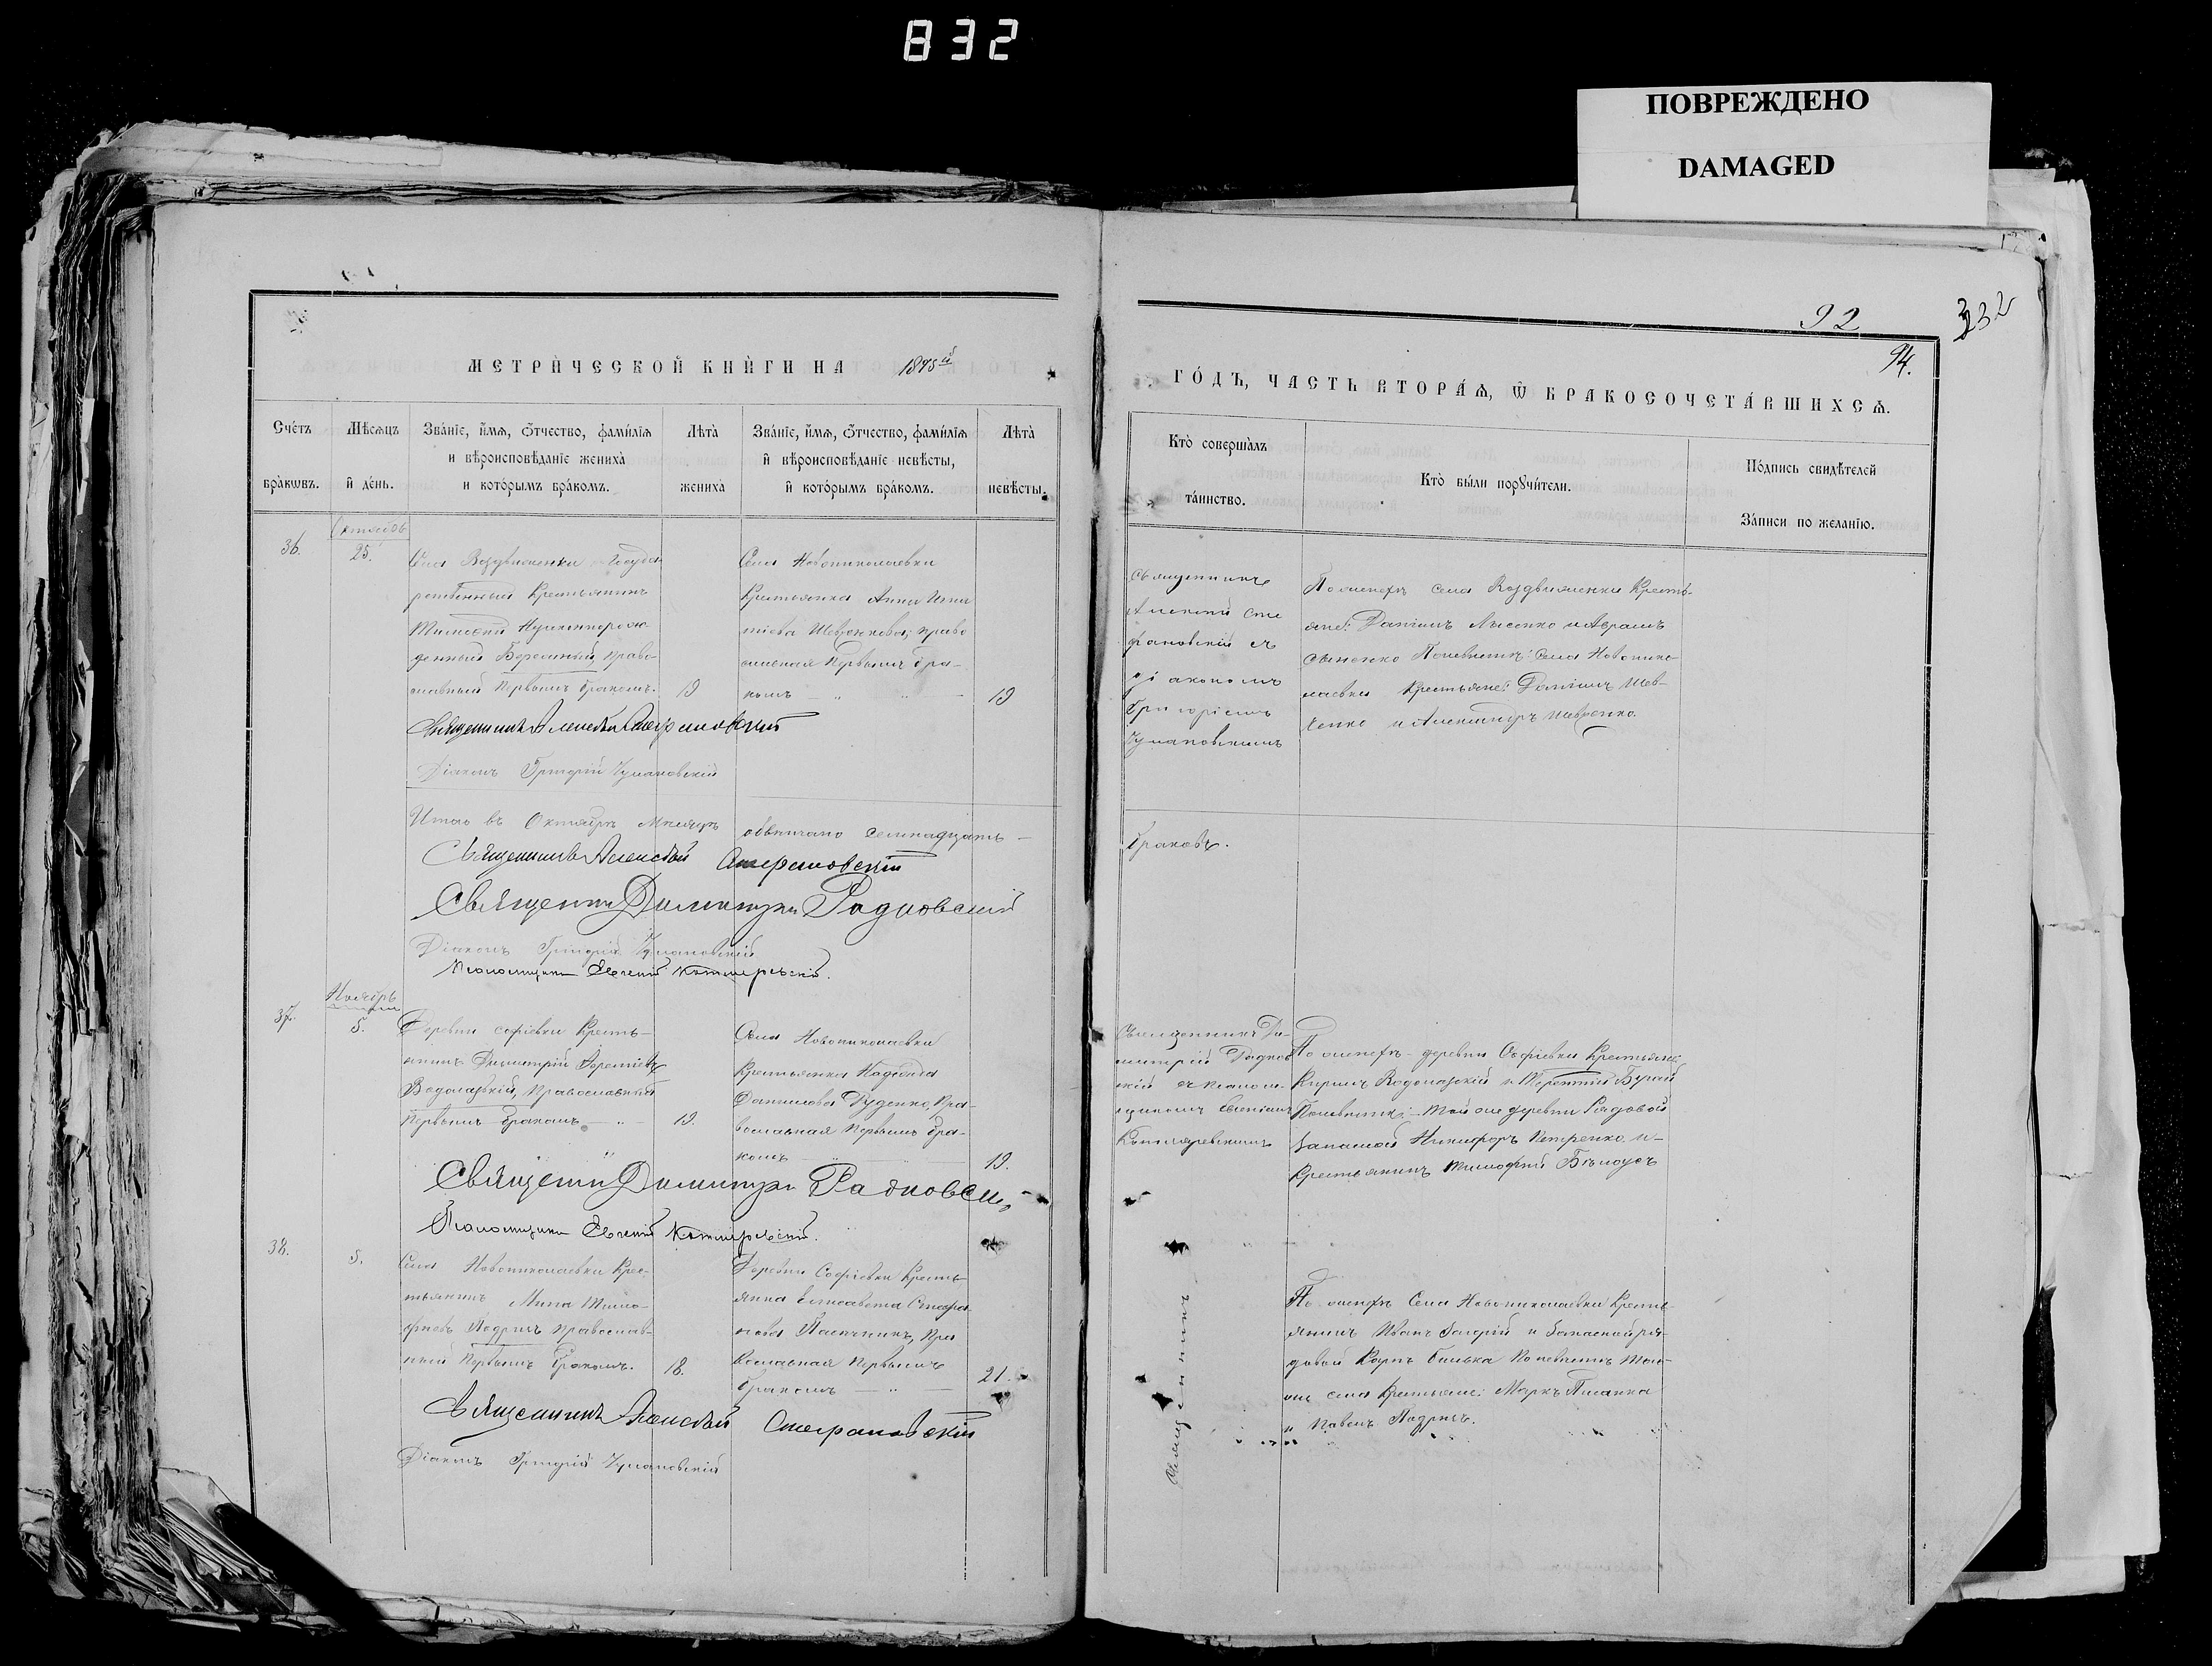 832
ПОВРЕЖДЕНО
DAMAGED
92
232
94.
МЕТРИ́ЧЕСКОЙ КНИ́ГИ НА 1875й
ГО́ДЪ, ЧАСТЬ ВТОРА́Ѧ, Ѿ БРАКОСОЧЕТА́ВШИХСѦ.
Сче́тъ бра́кѡвъ.
Мѣ́сѧцъ и҆ де́нь.
Зва́нїе, и҆́мѧ, ѻ҆́тчество, фами́лїѧ
и вѣроисповѣ́данїе жениха̀
и кото́рымъ бра́комъ.
Лѣ́та̀ жениха̀
Зва́нїе, и҆́мѧ, ѻ҆́тчество, фами́лїѧ
и҆ вѣроисповѣ́данїе невѣ́сты,
и҆ кото́рымъ бра́комъ.
Лѣ́та̀ невѣ́сты.
Кто̀ соверша́лъ
та́инство.
Кто̀ бы́ли порꙋчи́тели.
По́дпись свидѣ́телей
За́писи по жела́нїю.
36.
Октябрь
25.
Села Воздвиженки Госуда
рственный Крестьянинъ
Тимофей
денный Право-
славный Первымъ бракомъ.
19
Села Новониколаевки
Крестьянка Анна Игна
тіева Шевченкова, право
славная Первымъ бра-
комъ — „ „ —
19
Священникъ
Алексій Сте
фановскій съ
діакономъ
Григоріемъ
Чумановскимъ
По женихѣ села Воздвиженки Кресть-
яне: Даніилъ Лысенко и Аврамъ
По невѣстѣ: Села Новонико-
лаевки Крестьяне: Даніилъ Шев-
ченко и Александръ Шевченко.
Священникъ Алексѣй Стефановскій
Діаконъ Григорій Чумановскій
Итого въ Октябрѣ Мѣсяцѣ обвѣнчано семнадцать —
браковъ.
Священникъ Алексѣй Стефановскій
Священник Димитрій Радковский
Діаконъ Григорій Чумановскій
Псаломщикъ Евгеній Котляревскій.
37.
Ноябрь
5.
Деревни Софіевки Кресть-
янинъ Димитрій
Водолазскій, Православный
Первымъ бракомъ — „ —
19.
Села Новониколаевки
Крестьянка Надежда
Данилова Руденко, Пра-
вославная Первымъ бра-
комъ
19.
Священникъ Ди-
митрій Радков
скій съ псалом-
щикомъ Евгеніемъ
Котляревскимъ
По женихѣ - деревни Софіевки Крестьяне:
Кирилъ Водолазскій и Терентій
По невѣстѣ: — той же деревни Рядовой
Запасной Никифоръ Петренко и —
Крестьянинъ Тимофей Бѣлоусъ
Священник Димитрій Радковск
Псаломщикъ Евгеній Котляревскій.
38.
5.
Села Новониколаевки Крес-
тьянинъ Мина Тимо-
феевъ Православ-
ный Первымъ бракомъ.
18.
Деревни Софіевки Кресть
янка Елисавета Стефа
нова Пасѣчникъ, Пра
вославная Первымъ
бракомъ — „ —
21.
Священникъ
По женихѣ Села Новониколаевки Кресть-
янинъ Иванъ и Запасной ря-
довой Карпъ По невѣстѣ той-
же села Крестьяне: Маркъ
и Павелъ
Священникъ Алексѣй Стефановскій
Діаконъ Григорій Чумановскій